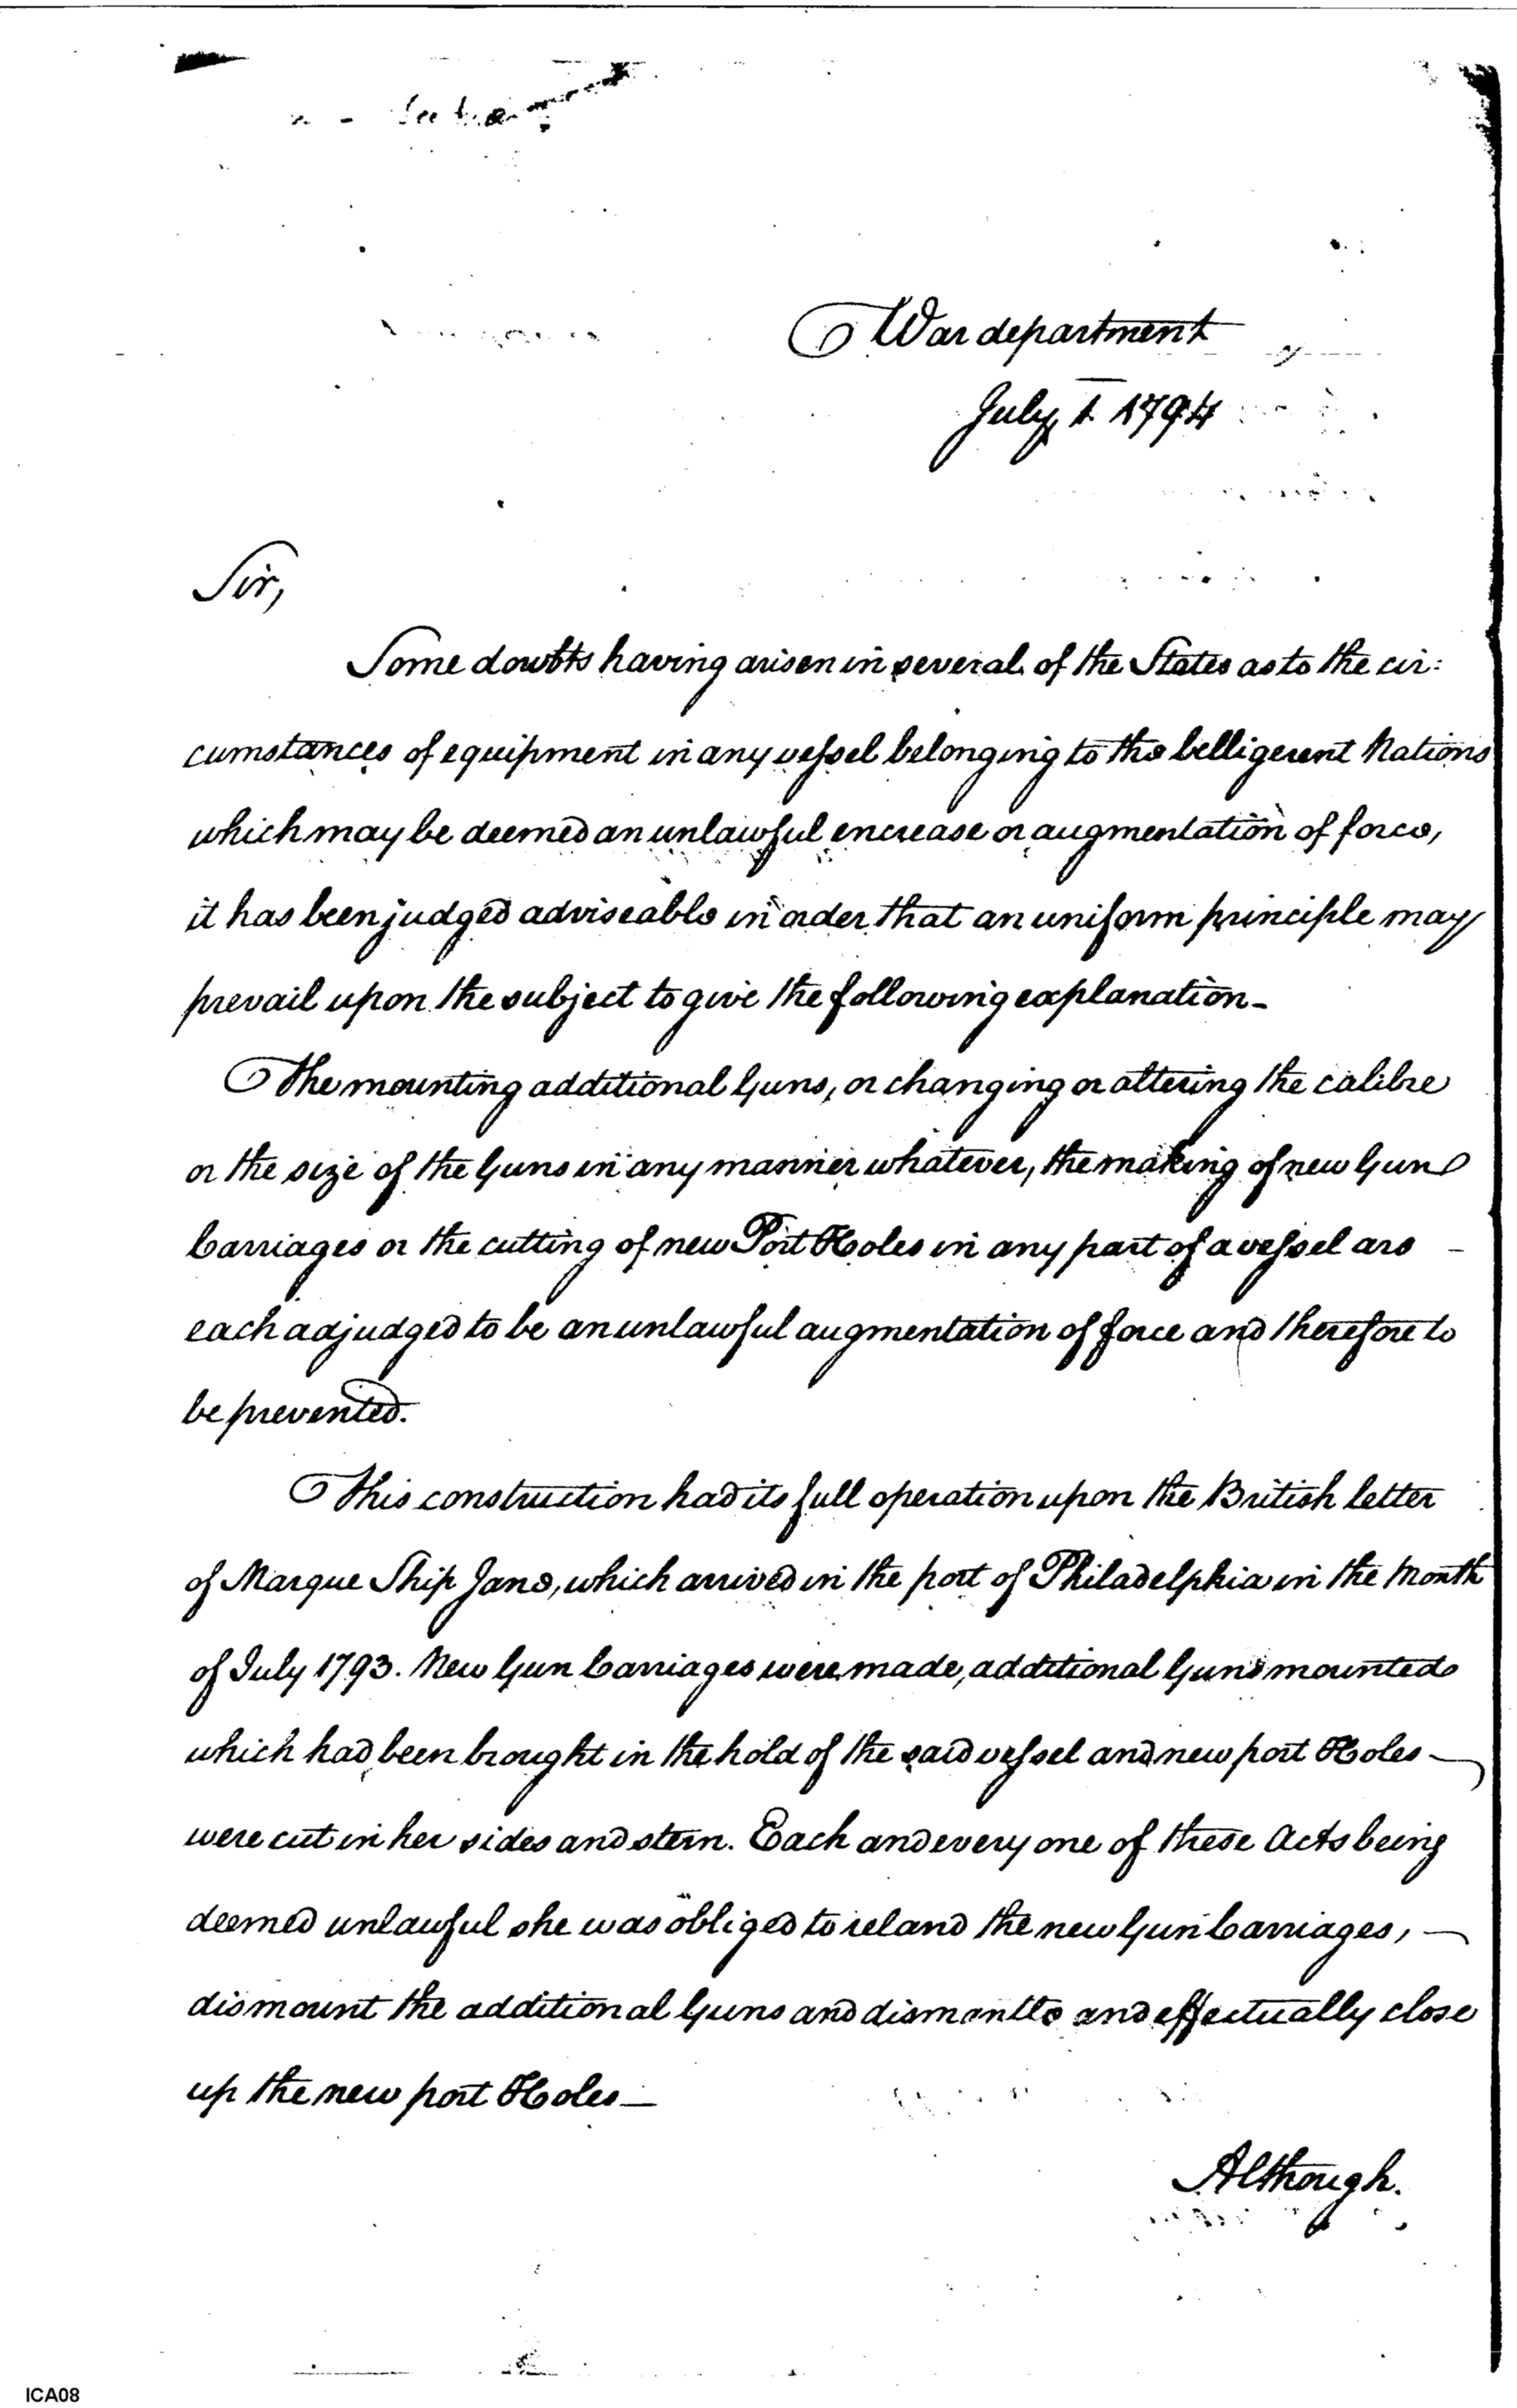 War department
July 1 1794
Sir,
Some doubts having arisen in several of the States as to the cir:
cumstances of equipment in any vessel belonging to the belligerent Nations
which may be deemed an unlawful encrease or augmentation of force,
it has been judged adviseable in order that an uniform principle may
prevail upon the subject to give the following explanation -
The mounting additional Guns, or changing or altering the calibre
or the size of the Guns in any manner whatever, the making of new Gun
Carriages or the cutting of new Port Holes in any part of a vessel are -
each adjudged to be an unlawful augmentation of force and therefore to
be prevented.
This construction had its full operation upon the British letter
of Marque Ship Jane, which arrived in the port of Philadelphia in the Month
of July 1793. New Gun Carriages were made, additional Guns mounted
which had been brought in the hold of the said vessel and new port Holes —
were cut in her sides and stern. Each and every one of these Acts being
deemed unlawful she was obliged to reland the new Gun Carriages, —
dismount the additional Guns and dismantle and effectually close
up the new port Holes —
Although.
ICA08